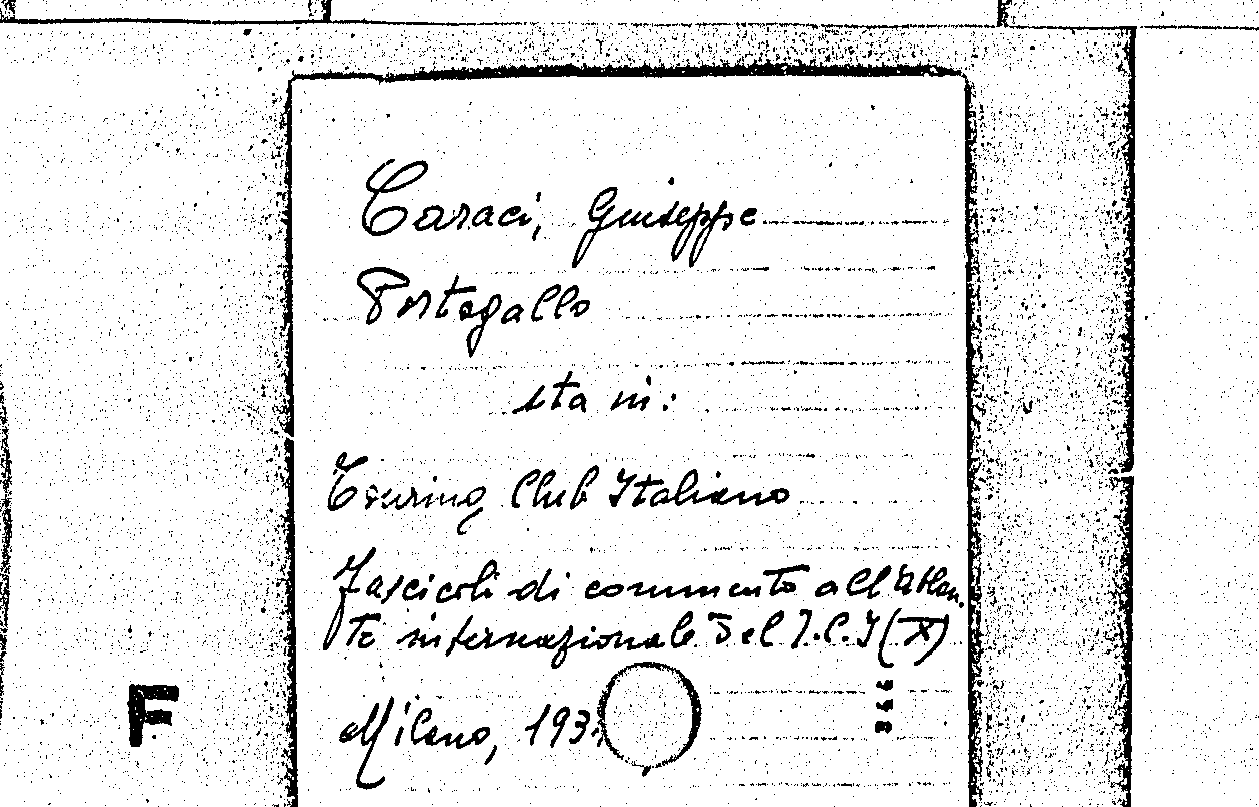 Caraci, Giuseppe
Portogallo
sta in:
Touring Club Italiano
Fascicoli di commento all'Atlan-
te internazionale del T.C.I (X)
Milano, 193
F